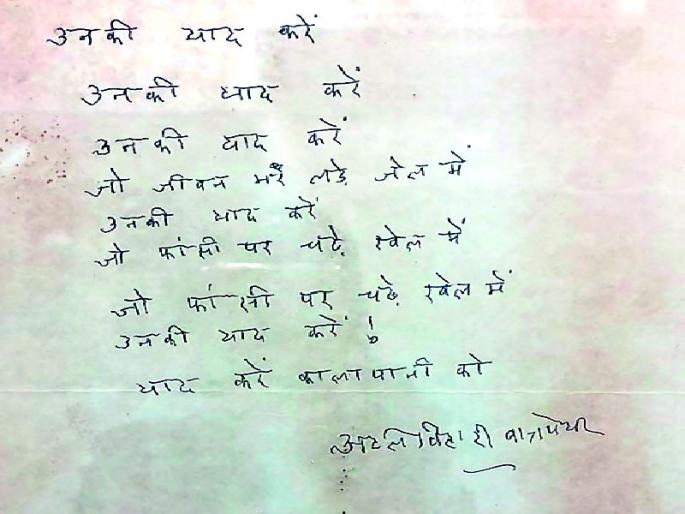 उनकी याद करें
उनकी याद करें
उनकी याद करें
जो जीवन भर लड़े जेल में
उनकी याद करें
जो फांसी पर चढ़े खेल में
जो फांसी पर चढ़े खेल में
उनकी याद करें !
याद करें कालापानी को
अटल बिहारी वाजपेयी